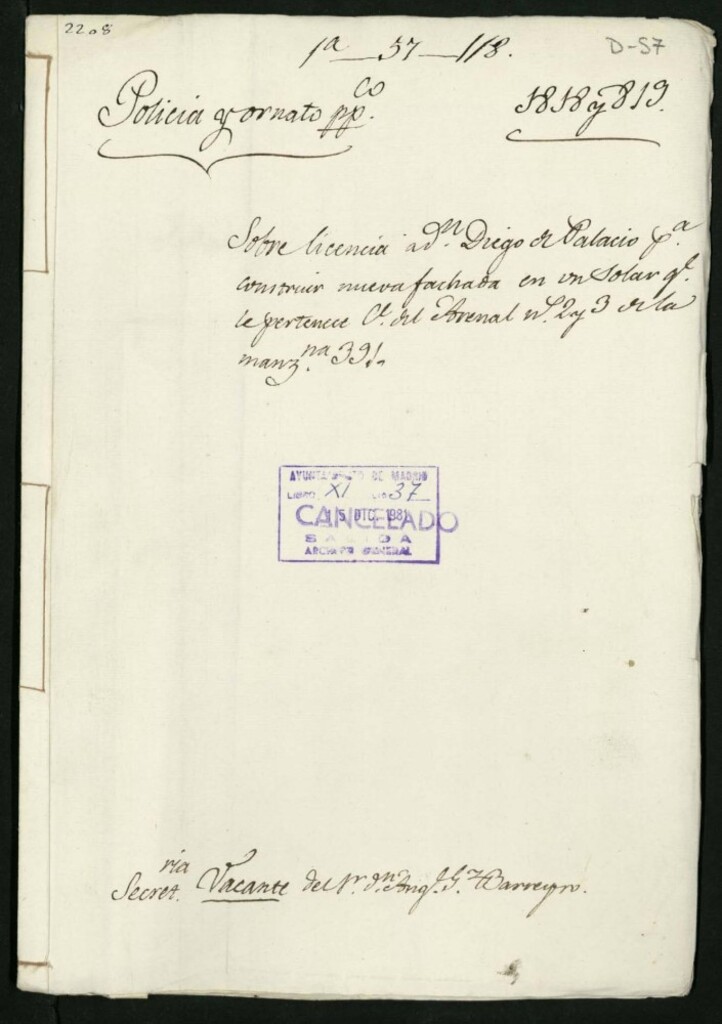 2208
1ª — 57 — 118.
D-57
Policia y ornato pp.co
1818 y 819.
Sobre licencia a dn. Diego de Palacio pª.
construir nueva fachada en un Solar q.e
le pertenece C.e del Arenal n.º 2 y 3 de la
manz.na 391.
AYUNTAMIENTO DE MADRID
LIBRO XI 37
15 DIC. 1981
CANCELADO
SALIDA
ARCHIVO GENERAL
Secret.ria Vacante del Sr. Dn. Ang.l G.z Barreyro.